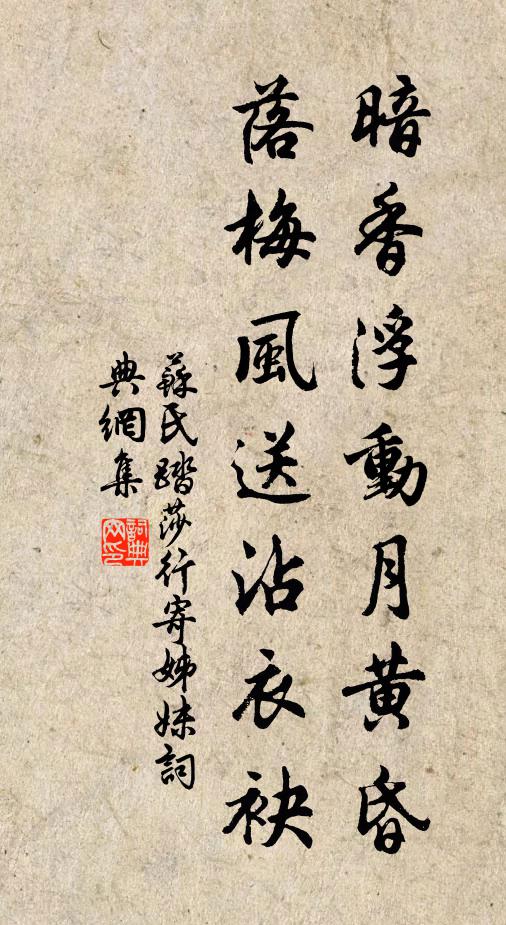 暗香浮動月黃昏
落梅風送沾衣袂
蘇氏踏莎行寄姊妹詞
典網集
詞典網印